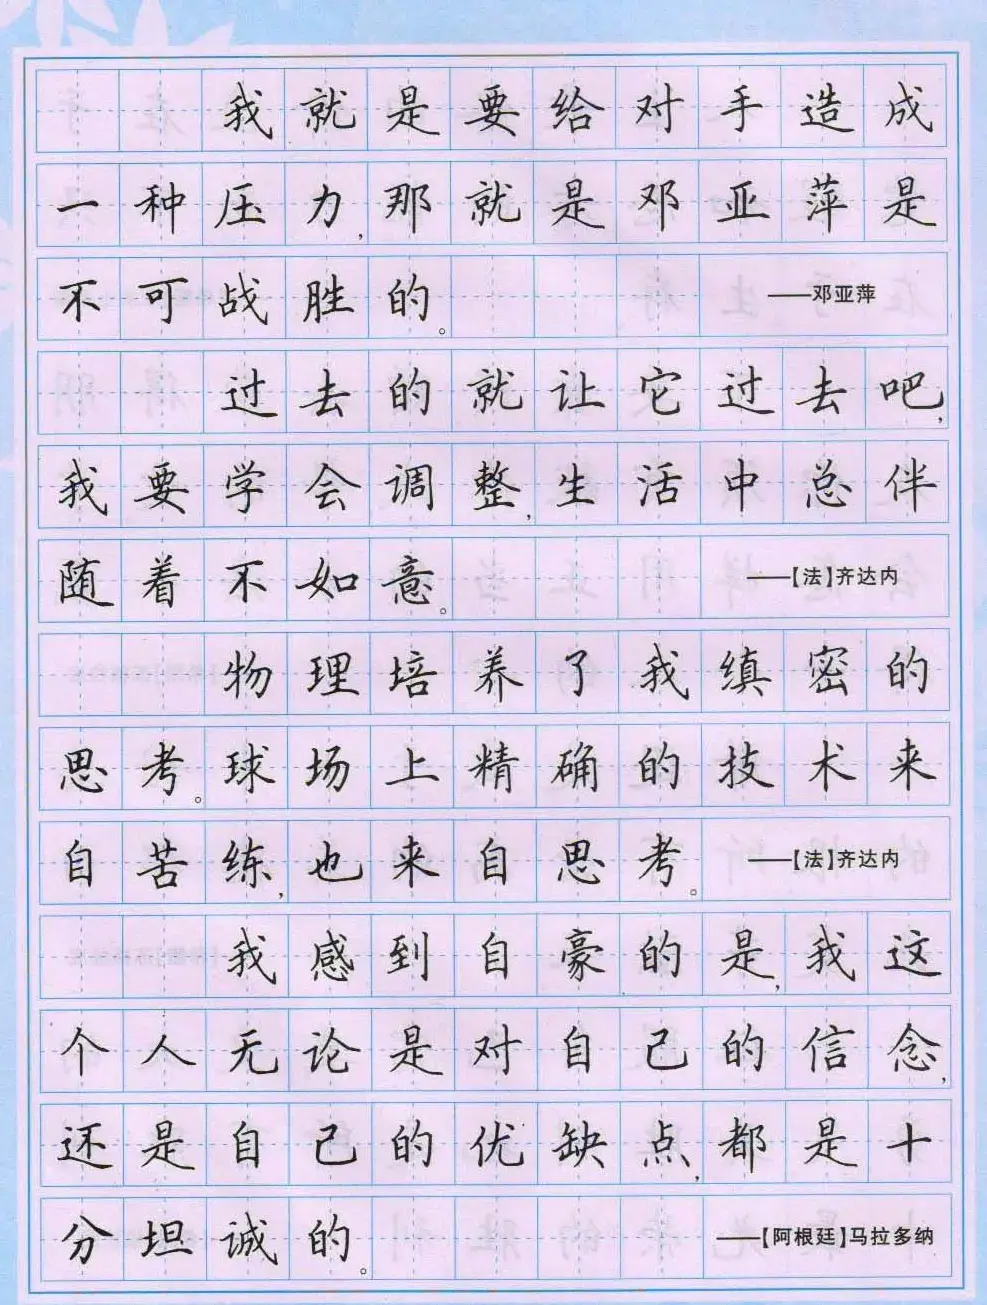 我就是要给对手造成
一种压力,那就是邓亚萍是
不可战胜的。 ——邓亚萍
过去的就让它过去吧,
我要学会调整,生活中总伴
随着不如意。 ——【法】齐达内
物理培养了我缜密的
思考。球场上精确的技术来
自苦练,也来自思考。 ——【法】齐达内
我感到自豪的是,我这
个人无论是对自己的信念,
还是自己的优缺点,都是十
分坦诚的。 ——【阿根廷】马拉多纳